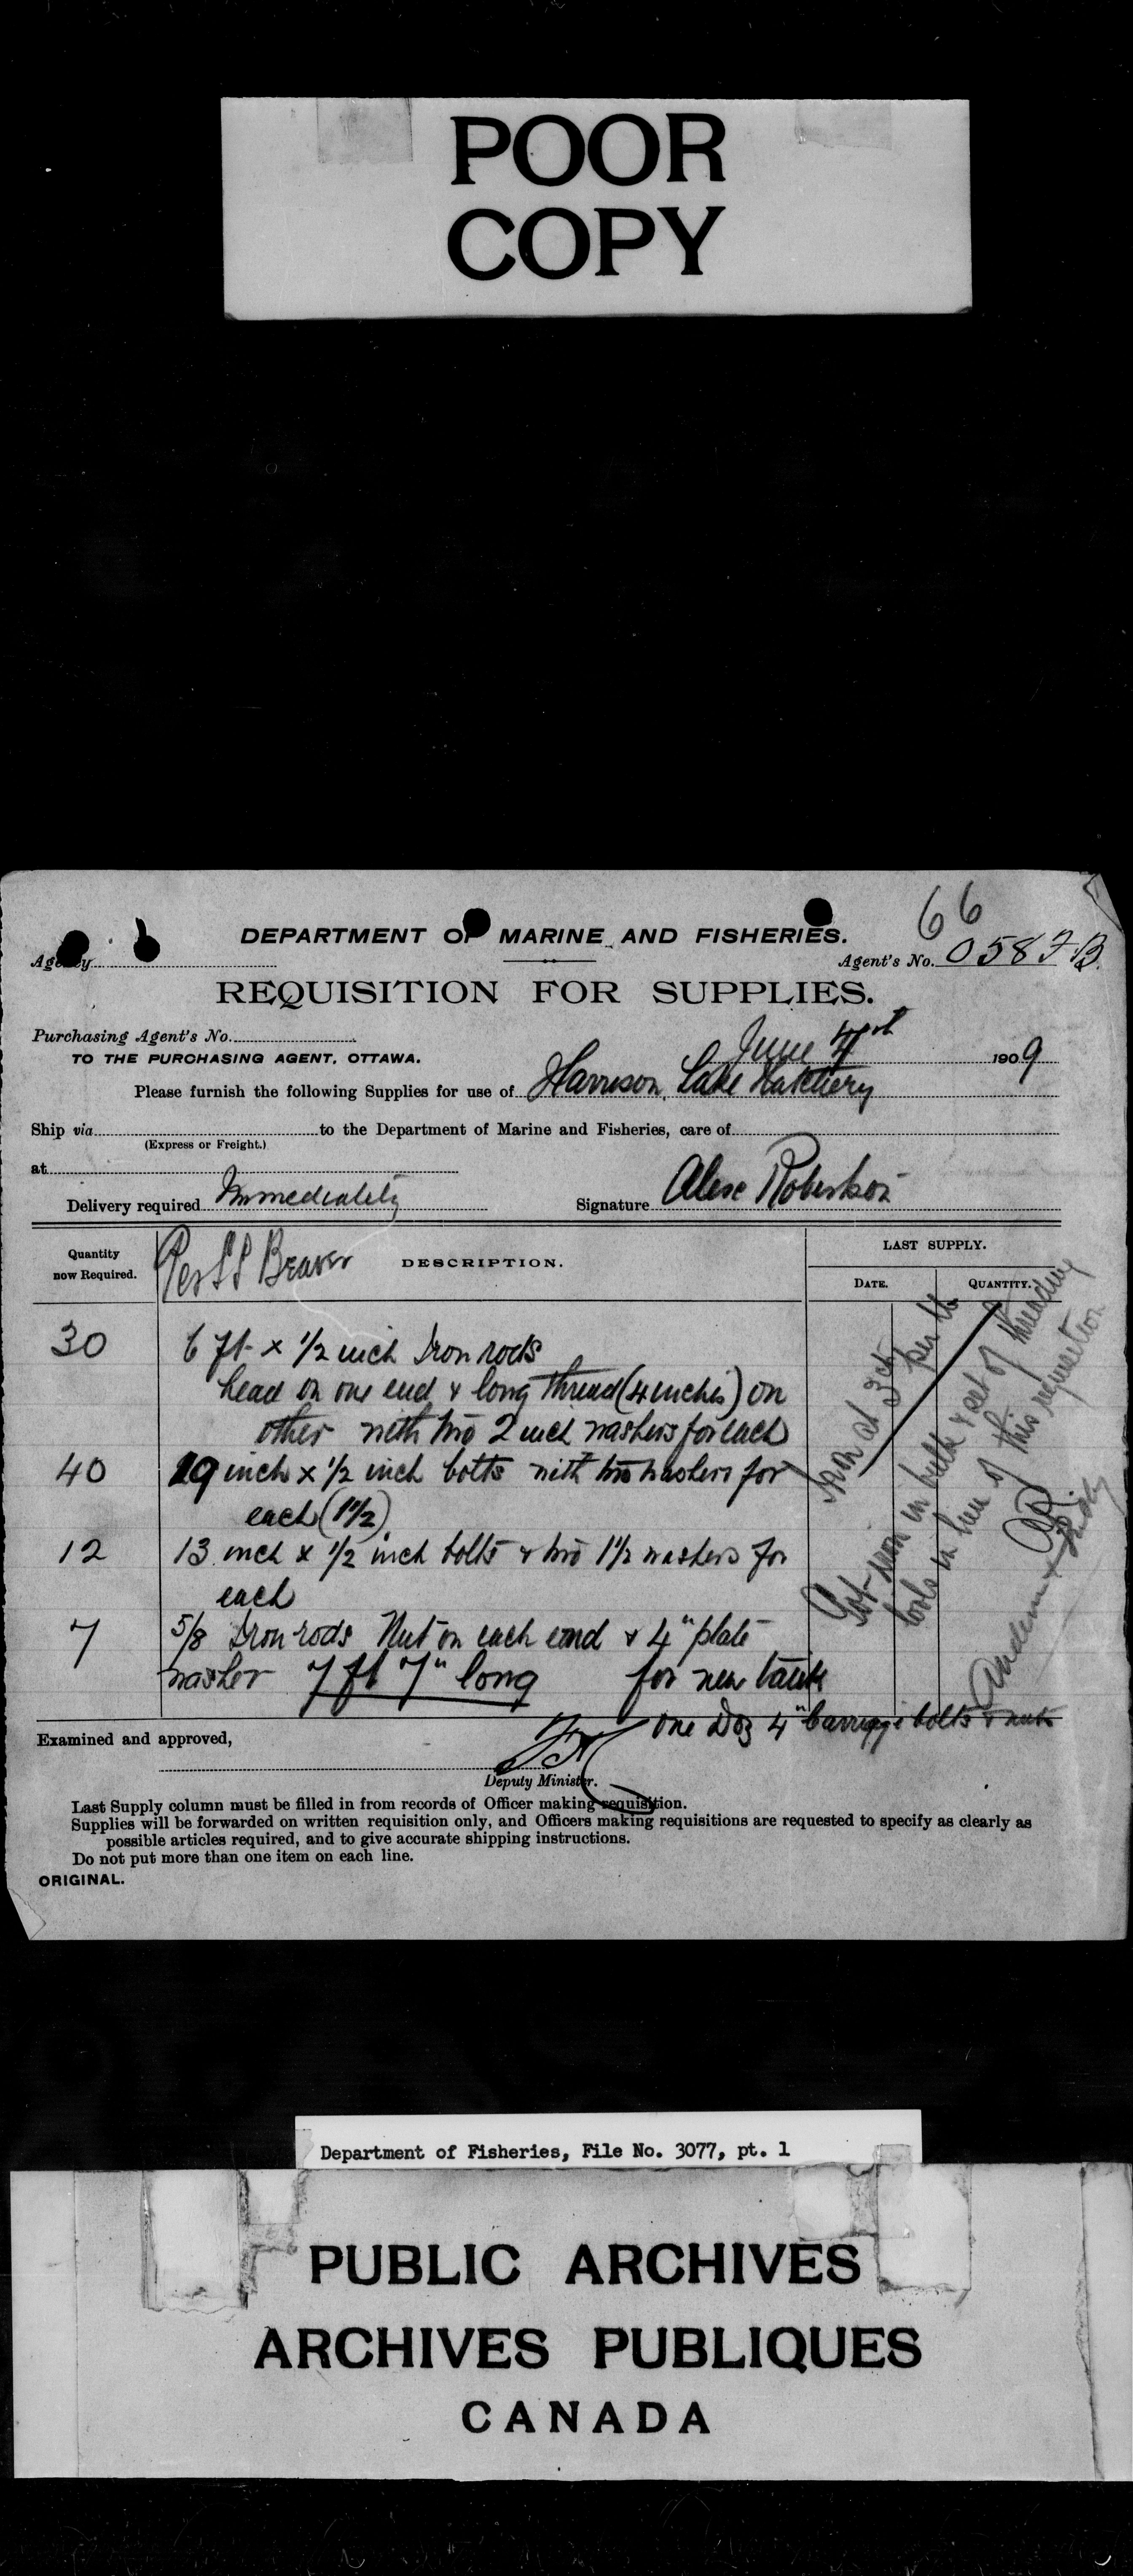 POOR
COPY
66
DEPARTMENT OF MARINE AND FISHERIES.
Agency
Agent's No. 0587B.
REQUISITION FOR SUPPLIES.
Purchasing Agent's No.
June 1909
TO THE PURCHASING AGENT, OTTAWA.
Please furnish the following Supplies for use of Harrison Lake Hatchery
Ship via to the Department of Marine and Fisheries, care of
(Express or Freight.)
at
Delivery required Immediately Signature Alexe Robertson
Quantity now Required.
Per SS Beaver
DESCRIPTION.
LAST SUPPLY.
DATE. QUANTITY.
30 6 ft. x 1/2 inch Iron rods
head on one end & long thread (4 inches) on
other with two 2 inch washers for each
40 19 inch x 1/2 inch bolts with two washers for
each (1 1/2)
12 13 inch x 1/2 inch bolts & two 1 1/2 washers for
each
7 5/8 Iron rods Nut on each end & 4" plate
washer 7 ft 7" long for new tank
one Doz 4" carriage bolts & nuts
Iron at 3cts per lb
Got iron in bulk & set of threading
tools in lieu of this requisition
Examined and approved,
Deputy Minister.
Last Supply column must be filled in from records of Officer making requisition.
Supplies will be forwarded on written requisition only, and Officers making requisitions are requested to specify as clearly as
possible articles required, and to give accurate shipping instructions.
Do not put more than one item on each line.
ORIGINAL.
Department of Fisheries, File No. 3077, pt. 1
PUBLIC ARCHIVES
ARCHIVES PUBLIQUES
CANADA